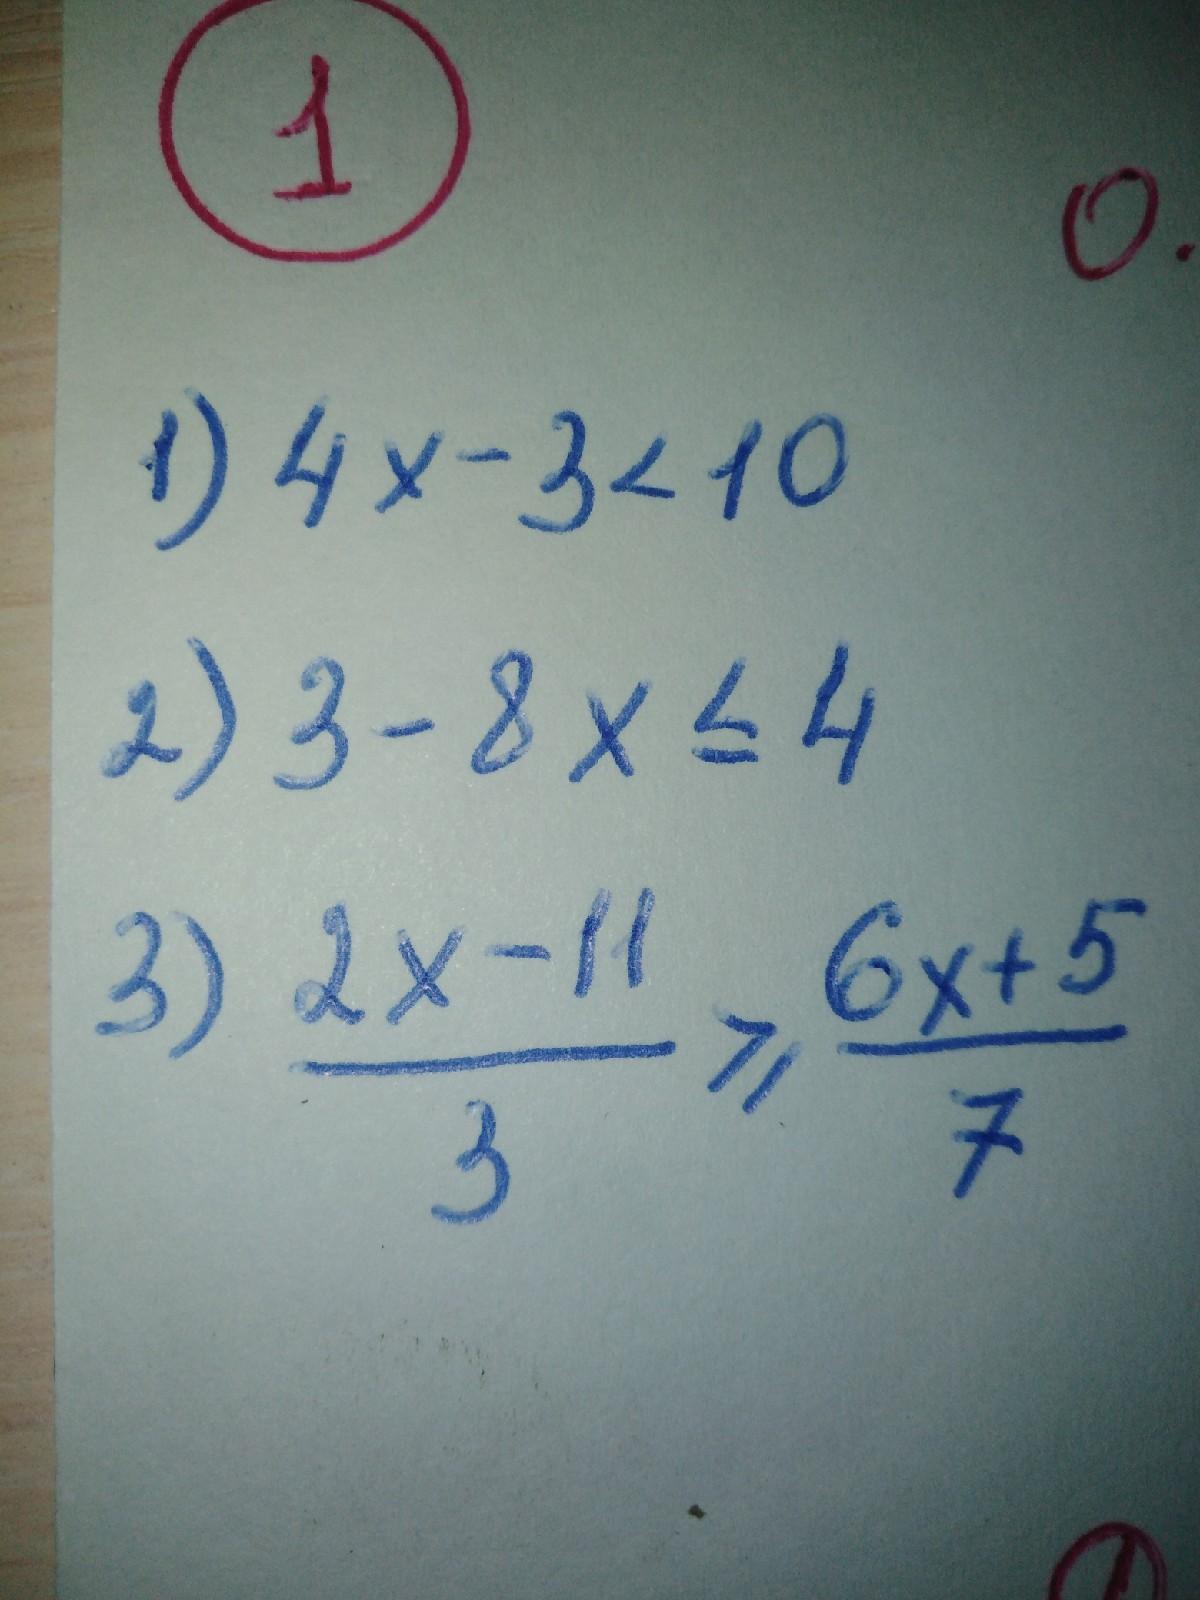 1
0.
1) 4x-3<10
2) 3-8x≤4
3) 2x-11/3 ⩾ 6x+5/7